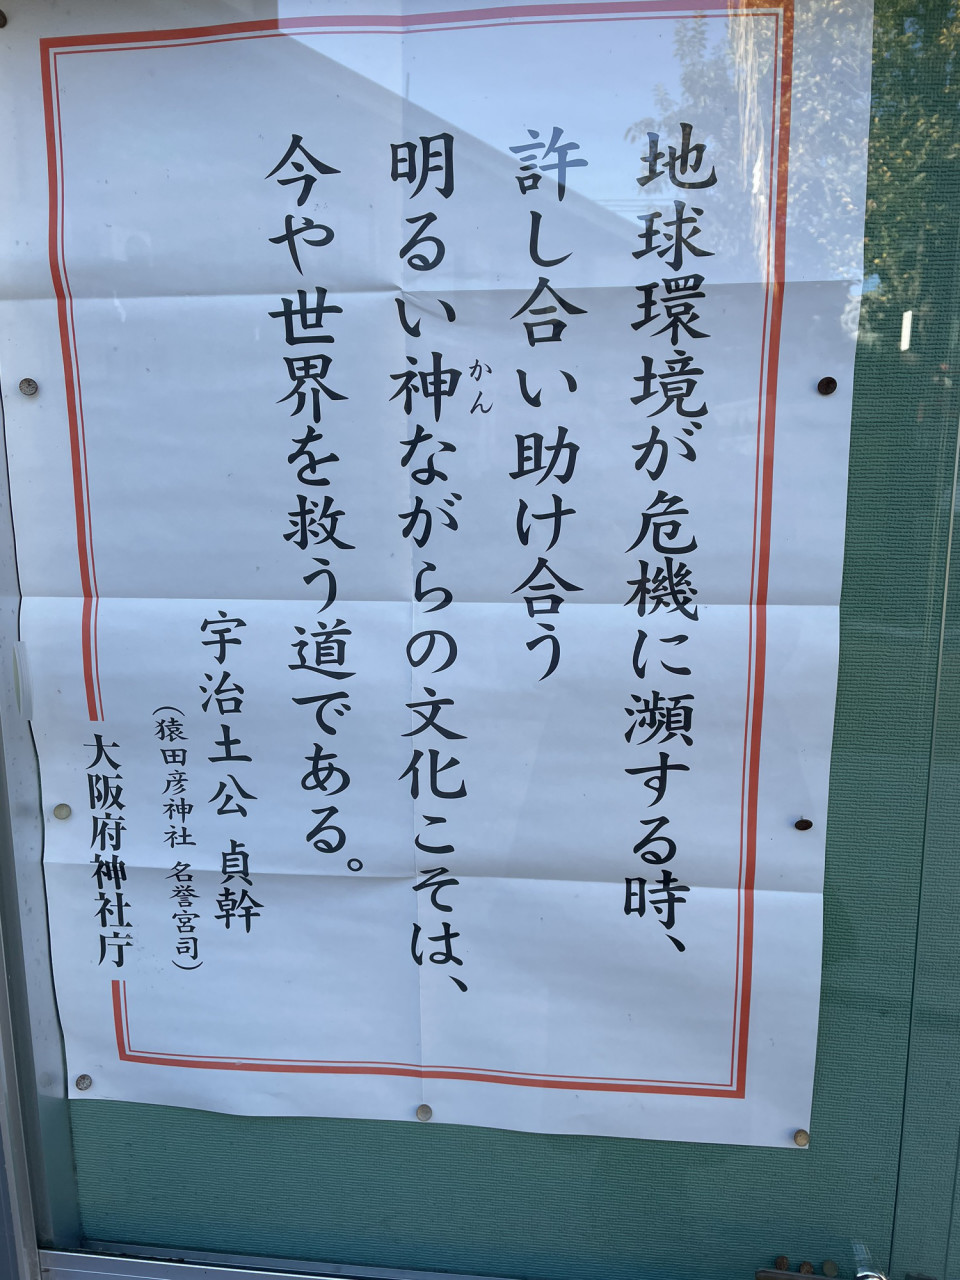 地球環境が危機に瀕する時、
許し合い助け合う
明るい神ながらの文化こそは、
かん
今や世界を救う道である。
宇治土公 貞幹
（猿田彦神社 名誉宮司）
大阪府神社庁